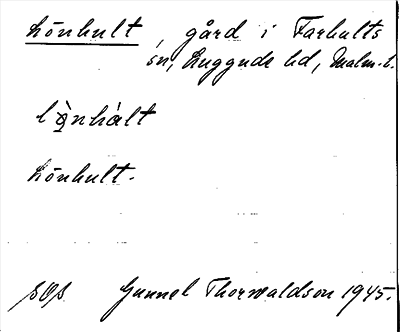 Lönhult, gård i Farhults
sn, Luggude hd, Malm.l.
Lönhult.
Gunnel Thorwaldson 1945.